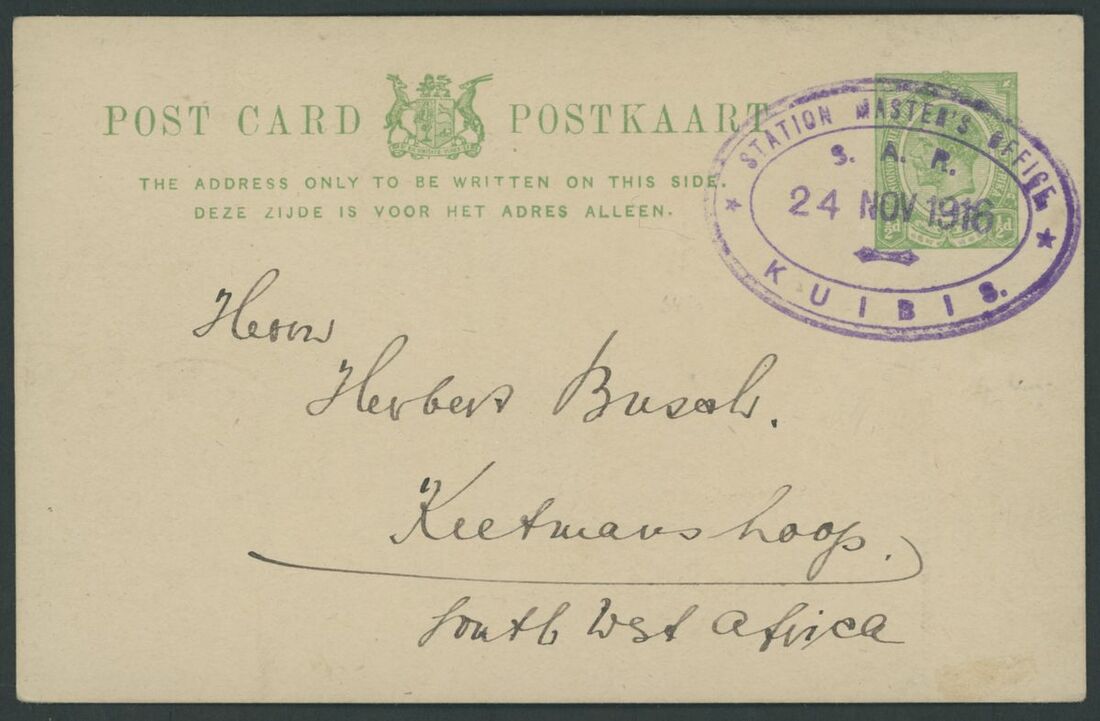 POST CARD POSTKAART
THE ADDRESS ONLY TO BE WRITTEN ON THIS SIDE.
DEZE ZIJDE IS VOOR HET ADRES ALLEEN.
STATION MASTER'S OFFICE
S. A. R.
24 NOV 1916
KUIBIS.
½d ½d
Herrn
Herbert Busch.
Keetmanshoop.
South West Africa